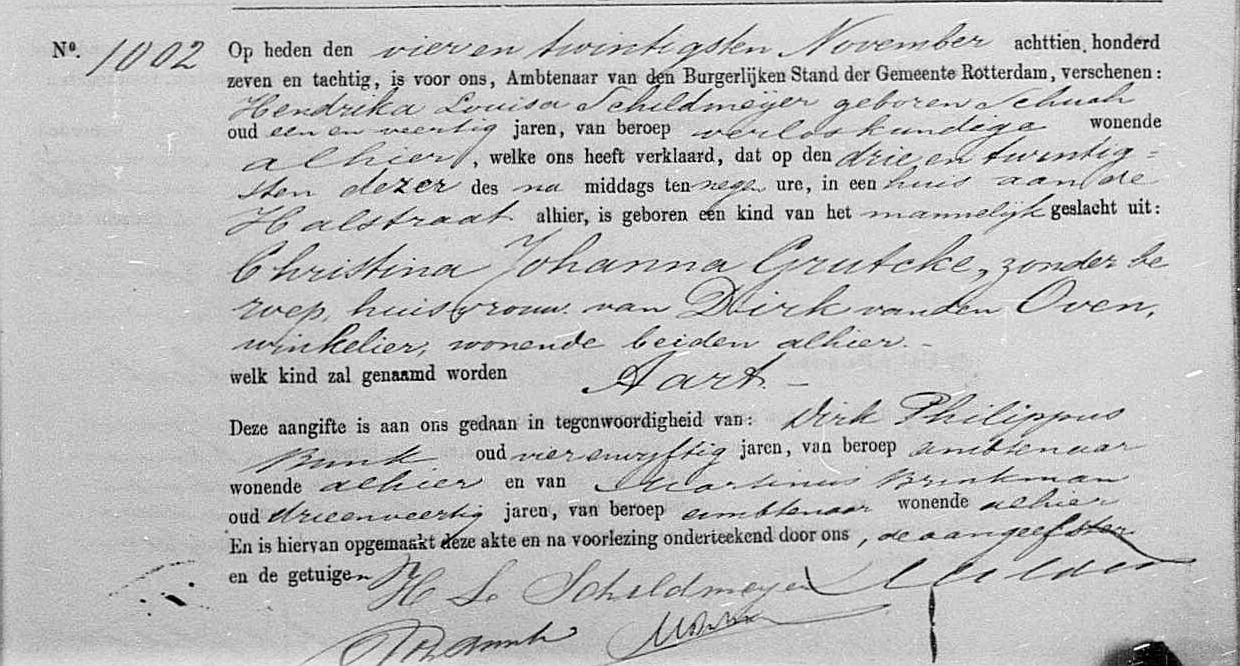 Nº. 1002 Op heden den vier en twintigsten November achttien honderd
zeven en tachtig, is voor ons, Ambtenaar van den Burgerlijken Stand der Gemeente Rotterdam, verschenen:
Hendrika Louisa Schildmeyer geboren Schuah
oud een en veertig jaren, van beroep verloskundige wonende
alhier, welke ons heeft verklaard, dat op den drie en twintig=
sten dezer des na middags ten negen ure, in een huis aan de
Halstraat alhier, is geboren een kind van het mannelijk geslacht uit:
Christina Johanna Grutcke, zonder be
roep, huisvrouw van Dirk van den Oven,
winkelier, wonende beiden alhier.-
welk kind zal genaamd worden Aart.-
Deze aangifte is aan ons gedaan in tegenwoordigheid van: Dirk Philippus
Bunk oud vierenvyftig jaren, van beroep ambtenaar
wonende alhier en van Martinus Brinkman
oud drieenveertig jaren, van beroep ambtenaar wonende alhier
En is hiervan opgemaakt deze akte en na voorlezing onderteekend door ons, de aangeefster
en de getuigen H L Schildmeyer Mulder